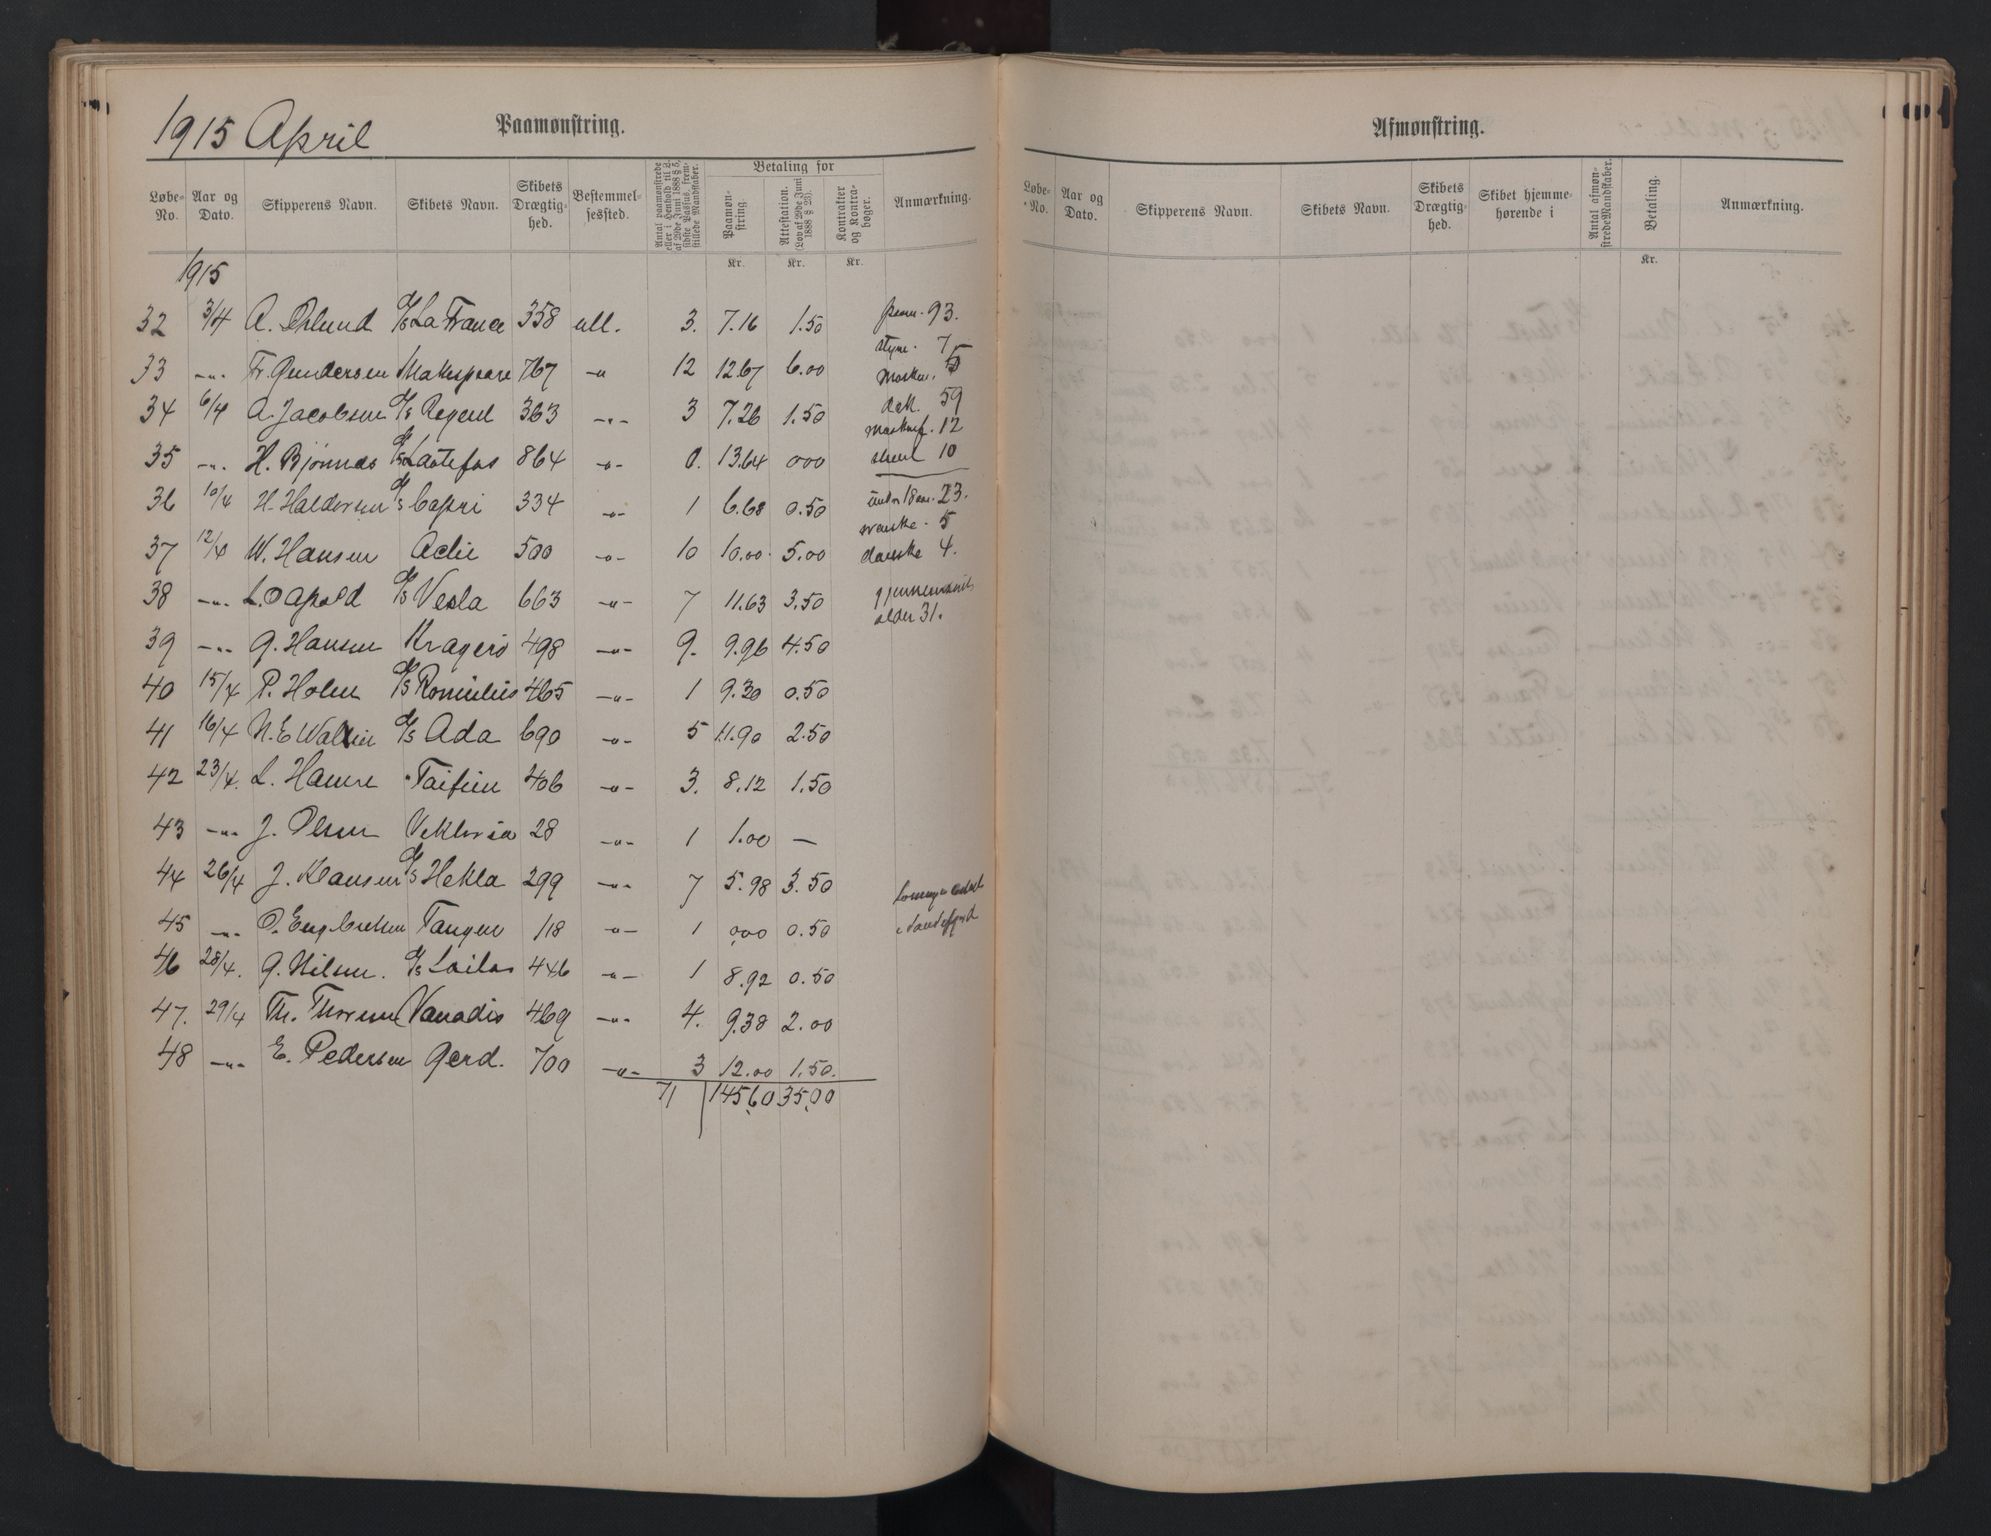 1915 April
Paamønstring.
Løbe-No. Aar og Dato. Skipperens Navn. Skibets Navn. Skibets Drægtighed. Bestemmelsessted. Antal paamønstrede eller i Henhold til L. af 29de Juni 1888 § 5, sidste Passus, fremstillede Mandskaber. Betaling for Paamønstring. Attestation. (Lov af 29de Juni 1888 § 23). Kontrakter og Kontrabøger. Anmærkning.
Kr. Kr. Kr.
1915
32 3/4 A. Oslund D/S La France 358 udl. 3. 7.16 1.50
33 -"- Fr. Gundersen Shakespeare 767 -"- 12 12.67 6.00
34 6/4 A. Jacobsen D/S Regent 363 -"- 3 7.26 1.50
35 -"- H. Bjønnes D/S Laatefos 864 -"- 0. 13.64 000
36 10/4 H. Haldorsen D/S Capri 334 -"- 1 6.68 0.50
37 12/4 W. Hansen Actie 500 -"- 10 10.00 5.00
38 -"- L. Opsold D/S Vesla 663 -"- 7 11.63 3.50
39 -"- G. Hansen Kragerö 498 -"- 9. 9.96 4.50
40 15/4 P. Holm D/S Romulus 465 -"- 1 9.30 0.50
41 16/4 N. E Wallin D/S Ada 690 -"- 5 11.90 2.50
42 23/4. L. Hamre " Taifun 406 -"- 3. 8.12 1.50
43 -"- J. Olsen Viktoria 28 -"- 1 1.00 —
44 26/4 J. Klausen D/S Hekla 299 -"- 7 5.98 3.50
45 -"- O. Engbretsen Tangen 118 -"- 1 000 0.50
46 28/4. G. Nilsen. D/S Lailas 446 -"- 1 8.92 0.50
47. 29/4 Th. Thorsen Vanadis 469 -"- 4. 9.38 2.00
48 -"- E. Pedersen Gerd. 700 -"- 3 12.00 1.50.
71 145.60 35.00
93.
styrm. 7
Maskin. 5
Dæk. 59
Maskinf. 12
stuert 10
under 18 aar. 23.
svenske - 5
danske 4.
gjennemsnits
alder 31.
i Sandefjord
Afmønstring.
Løbe-No. Aar og Dato. Skipperens Navn. Skibets Navn. Skibets Drægtighed. Skibet hjemmehørende i Antal afmønstrede Mandskaber. Betaling. Anmærkning.
Kr.